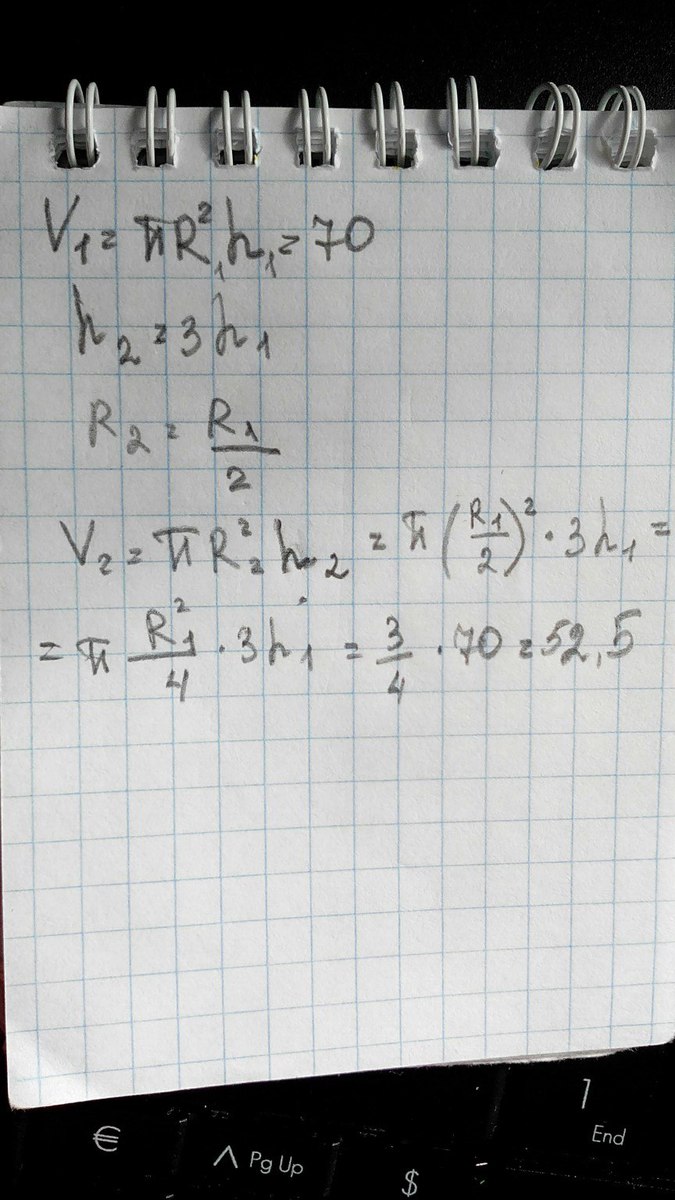 V₁ = πR₁²h₁ = 70
h₂ = 3h₁
R₂ = R₁/2
V₂ = πR₂²h₂ = π(R₁/2)² · 3h₁ =
= π R₁²/4 · 3h₁ = 3/4 · 70 = 52,5
€
^ Pg Up
$
1
End